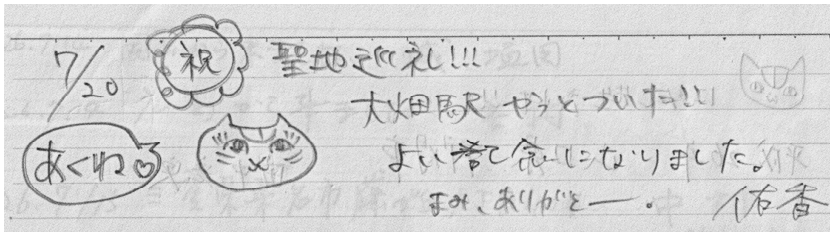 7/20 祝 聖地巡礼!!!
大畑駅 やっとついた!!!
あくね
よい誉て念にになりました。
まみ、ありがとー。 佑香